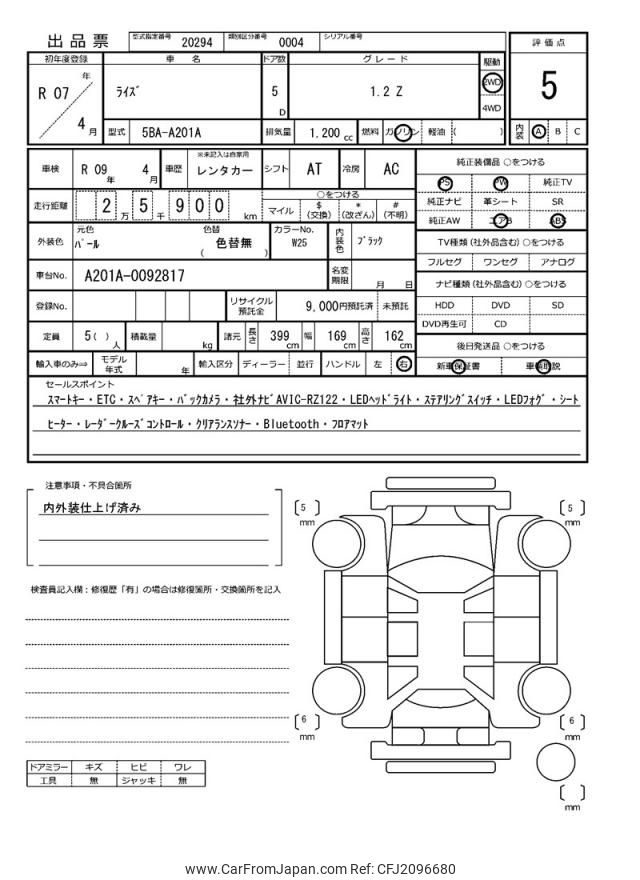 出品票 型式指定番号 20294 類別区分番号 0004 シリアル番号
評価点
5
内装 A B C
初年度登録 車名 ドア数 グレード 駆動
R 07 年 4 月 ライズ 5 D 1.2 Z 2WD 4WD
型式 5BA-A201A 排気量 1.200 cc 燃料 ガソリン 軽油 ( )
車検 R 09 年 4 月 車歴 ※未記入は自家用 レンタカー シフト AT 冷房 AC
走行距離 2 万 5 千 9 0 0 km
○をつける
マイル $ (交換) * (改ざん) # (不明)
外装色 元色 パール 色替 ( 色替無 ) カラーNo. W25 内装色 ブラック
車台No. A201A-0092817 名変期限 月 日
登録No. リサイクル預託金 9,000円預託済 未預託
定員 5( ) 人 積載量 kg 諸元 長さ 399 cm 幅 169 cm 高さ 162 cm
輸入車のみ⇒ モデル年式 年 輸入区分 ディーラー 並行 ハンドル 左 右
純正装備品 ○をつける
PS PW 純正TV
純正ナビ 革シート SR
純正AW エアB ABS
TV種類 (社外品含む) ○をつける
フルセグ ワンセグ アナログ
ナビ種類 (社外品含む) ○をつける
HDD DVD SD
DVD再生可 CD
後日発送品 ○をつける
新車保証書 車輌取説
セールスポイント
スマートキー・ETC・スペアキー・バックカメラ・社外ナビAVIC-RZ122・LEDヘッドライト・ステアリングスイッチ・LEDフォグ・シート
ヒーター・レーダークルーズコントロール・クリアランスソナー・Bluetooth・フロアマット
注意事項・不具合箇所
内外装仕上げ済み
検査員記入欄：修復歴「有」の場合は修復箇所・交換箇所を記入
ドアミラー キズ ヒビ ワレ
工具 無 ジャッキ 無
5 mm
5 mm
6 mm
6 mm
mm
www.CarFromJapan.com Ref: CFJ2096680